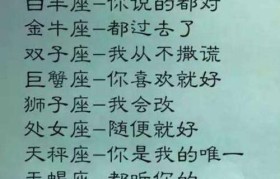 白羊座–你说的都对
金牛座–都过去了
双子座–我从不撒谎
巨蟹座–你喜欢就好
狮子座–我会改
处女座–随便就好
天秤座–你是我的唯一
天蝎座–都听你的